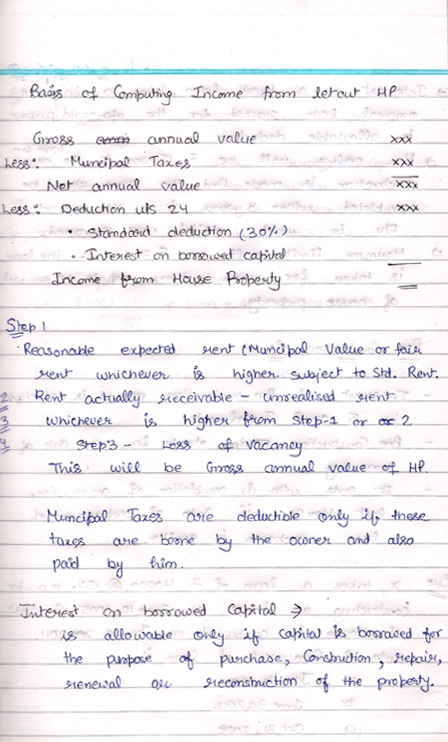 Basis of Computing Income from letout HP
Gross annual value xxx
Less: Muncipal Taxes xxx
Net annual value xxx
Less: Deduction u/s 24 xxx
• Standard deduction (30%)
• Interest on borrowed capital
Income from House Property
Step 1
Reasonable expected rent (Muncipal Value or fair
rent whichever is higher subject to Std. Rent.
2 Rent actually receivable - unrealised rent
3 whichever is higher from Step-1 or 2
4 Step3 - Loss of vacancy
This will be Gross annual value of HP.
Muncipal Taxes are deductible only if these
taxes are borne by the owner and also
paid by him.
Interest on borrowed Capital →
is allowable only if capital is borrowed for
the purpose of purchase, Construction, repair,
renewal or reconstruction of the property.